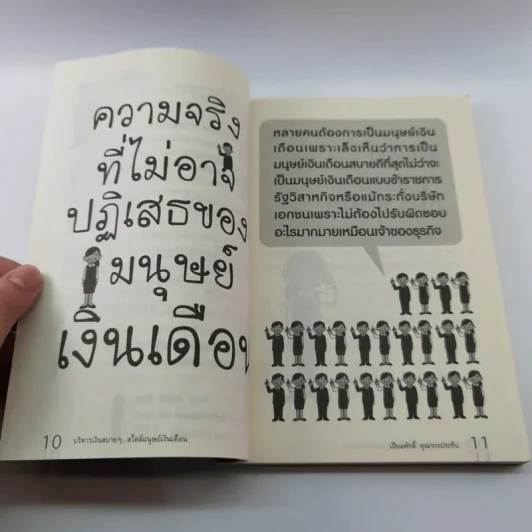 ความจริง
ที่ไม่อาจ
ปฏิเสธของ
มนุษย์
เงินเดือน
10 บริหารเงินสบายๆ...สไตล์มนุษย์เงินเดือน
หลายคนต้องการเป็นมนุษย์เงิน
เดือนเพราะเล็งเห็นว่าการเป็น
มนุษย์เงินเดือนสบายดีที่สุดไม่ว่าจะ
เป็นมนุษย์เงินเดือนแบบข้าราชการ
รัฐวิสาหกิจหรือแม้กระทั่งบริษัท
เอกชนเพราะไม่ต้องไปรับผิดชอบ
อะไรมากมายเหมือนเจ้าของธุรกิจ
เปี่ยมศักดิ์ คุณากรประทีป 11